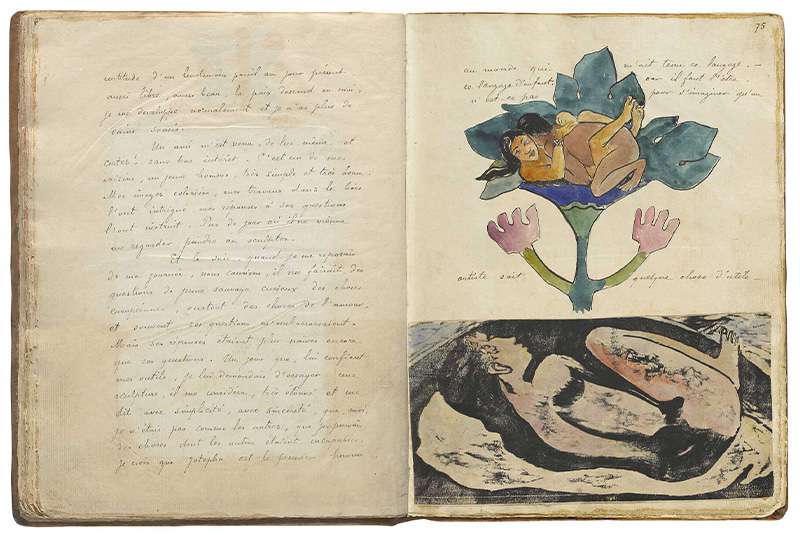 certitude d'un lendemain pareil au jour présent
aussi libre, aussi beau, la paix descend en moi,
je me developpe normalement et je n'ai plus de
vains soucis.
Un ami m'est venu, de lui même et
certes! sans bas intérêt. C'est un de mes
voisins, un jeune homme, très simple et très beau.
Mes images coloriées, mes travaux dans le bois
l'ont intrigué mes réponses à ses questions
l'ont instruit. Pas de jour où il ne vienne
me regarder peindre ou sculpter.
Et le soir, quand je me reposais
de ma journée, nous causions, il me faisait des
questions de jeune sauvage curieux des choses
européennes, surtout des choses de l'amour,
et souvent ses questions m'embarrassaient.
Mais ses réponses étaient plus naïves encore
que ses questions. Un jour que, lui confiant
mes outils, je lui demandais d'essayer une
sculpture, il me considéra, très étonné et me
dit avec simplicité, avec sincérité que, moi,
je n'étais pas comme les autres, que je pouvais
des choses dont les autres étaient incapables.
Je crois que Jotepha est le premier homme
75
au monde qui m'ait tenu ce langage. —
ce langage d'enfant. car il faut l'être
n'est ce pas pour s'imaginer qu'un
artiste soit quelque chose d'utile —